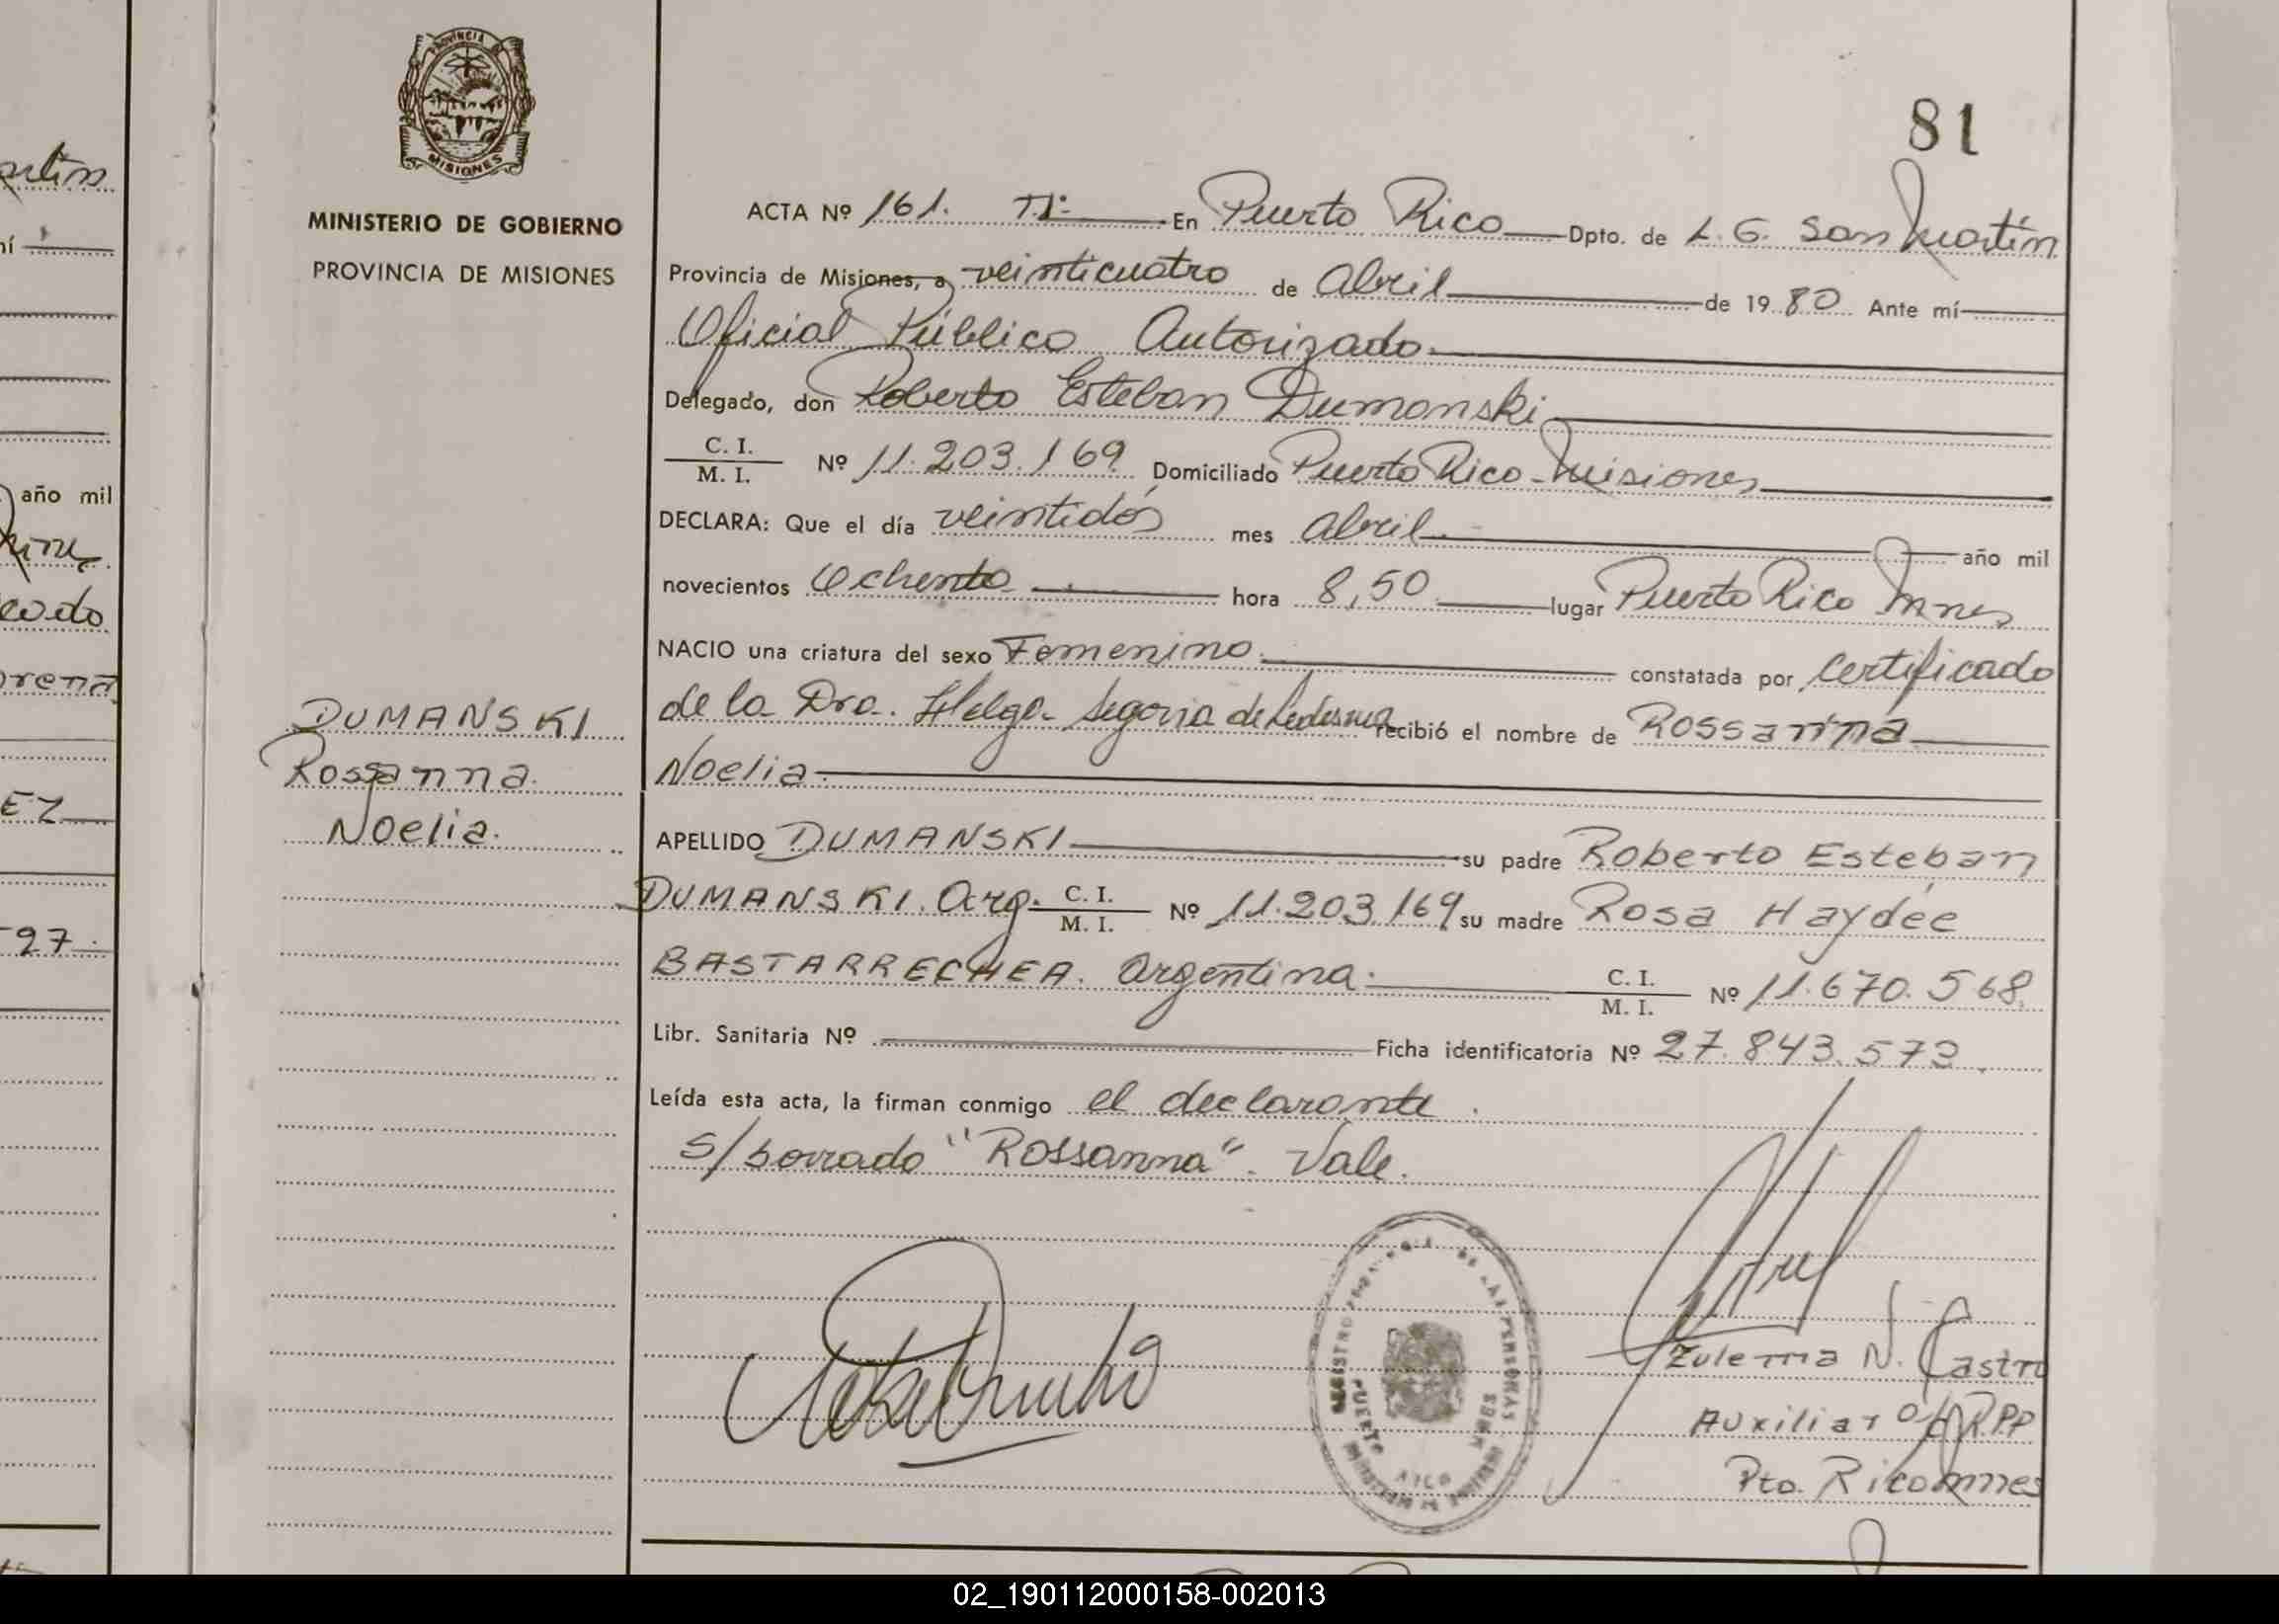 PROVINCIA
MISIONES
MINISTERIO DE GOBIERNO
PROVINCIA DE MISIONES
81
ACTA Nº 161. Tº I En Puerto Rico Dpto. de L. G. San Martín
Provincia de Misiones, a veinticuatro de Abril de 1980 Ante mí
Oficial Público Autorizado
Delegado, don Roberto Esteban Dumanski
C. I.
M. I. Nº 11.203.169 Domiciliado Puerto Rico - Misiones
DECLARA: Que el día veintidós mes Abril año mil
novecientos Ochenta hora 8,50 lugar Puerto Rico Mnes
NACIO una criatura del sexo Femenino. constatada por Certificado
de la Dra. Helga Segovia de Ledesma recibió el nombre de Rossanna
Noelia.
DUMANSKI
Rossanna
Noelia.
APELLIDO DUMANSKI su padre Roberto Esteban
DUMANSKI. Arg. C. I.
M. I. Nº 11.203.169 su madre Rosa Haydée
BASTARRECHEA. Argentina. C. I.
M. I. Nº 11.670.568
Libr. Sanitaria Nº Ficha identificatoria Nº 27.843.573
Leída esta acta, la firman conmigo el declarante.
S/borrado "Rossanna". Vale.
Zulema N. Castro
Auxiliar R.P.P
Pto. Rico Mnes
PUERTO RICO
MNES
año mil
EZ
02_190112000158-002013